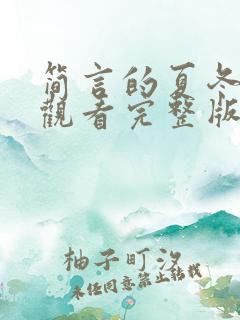 简言的夏冬
觀看完整版
柚子町汐
未经同意禁止转载